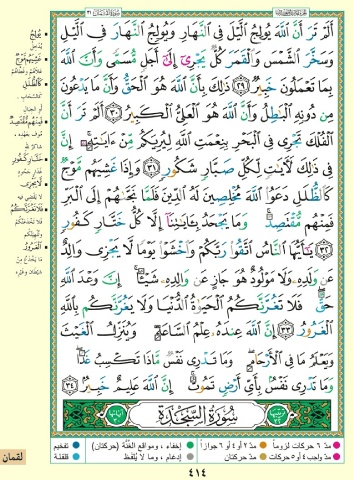 أَلَمْ تَرَ أَنَّ ٱللَّهَ يُولِجُ ٱلَّيْلَ فِى ٱلنَّهَارِ وَيُولِجُ ٱلنَّهَارَ فِى ٱلَّيْلِ
وَسَخَّرَ ٱلشَّمْسَ وَٱلْقَمَرَ كُلٌّ يَجْرِىٓ إِلَىٰٓ أَجَلٍ مُّسَمًّى وَأَنَّ ٱللَّهَ
بِمَا تَعْمَلُونَ خَبِيرٌ ٢٩ ذَٰلِكَ بِأَنَّ ٱللَّهَ هُوَ ٱلْحَقُّ وَأَنَّ مَا يَدْعُونَ
مِن دُونِهِ ٱلْبَٰطِلُ وَأَنَّ ٱللَّهَ هُوَ ٱلْعَلِىُّ ٱلْكَبِيرُ ٣٠ أَلَمْ تَرَ أَنَّ
ٱلْفُلْكَ تَجْرِى فِى ٱلْبَحْرِ بِنِعْمَتِ ٱللَّهِ لِيُرِيَكُم مِّنْ ءَايَٰتِهِۦٓ إِنَّ
فِى ذَٰلِكَ لَءَايَٰتٍ لِّكُلِّ صَبَّارٍ شَكُورٍ ٣١ وَإِذَا غَشِيَهُم مَّوْجٌ
كَٱلظُّلَلِ دَعَوُا۟ ٱللَّهَ مُخْلِصِينَ لَهُ ٱلدِّينَ فَلَمَّا نَجَّىٰهُمْ إِلَى ٱلْبَرِّ
فَمِنْهُم مُّقْتَصِدٌ وَمَا يَجْحَدُ بِـَٔايَٰتِنَآ إِلَّا كُلُّ خَتَّارٍ كَفُورٍ
٣٢ يَٰٓأَيُّهَا ٱلنَّاسُ ٱتَّقُوا۟ رَبَّكُمْ وَٱخْشَوْا۟ يَوْمًا لَّا يَجْزِى وَالِدٌ
عَن وَلَدِهِۦ وَلَا مَوْلُودٌ هُوَ جَازٍ عَن وَالِدِهِۦ شَيْـًٔا إِنَّ وَعْدَ ٱللَّهِ
حَقٌّ فَلَا تَغُرَّنَّكُمُ ٱلْحَيَوٰةُ ٱلدُّنْيَا وَلَا يَغُرَّنَّكُم بِٱللَّهِ
ٱلْغَرُورُ ٣٣ إِنَّ ٱللَّهَ عِندَهُۥ عِلْمُ ٱلسَّاعَةِ وَيُنَزِّلُ ٱلْغَيْثَ
وَيَعْلَمُ مَا فِى ٱلْأَرْحَامِ وَمَا تَدْرِى نَفْسٌ مَّاذَا تَكْسِبُ غَدًا
وَمَا تَدْرِى نَفْسٌۢ بِأَىِّ أَرْضٍ تَمُوتُ إِنَّ ٱللَّهَ عَلِيمٌ خَبِيرٌۢ ٣٤
سُورَةُ السَّجْدَةِ
يُولِجُ
يُدخل
غَشِيَهُم مَّوْجٌ
كَٱلظُّلَلِ
كالسحاب
فَمِنْهُم مُّقْتَصِدٌ
خَتَّارٍ كَفُورٍ
لَّا يَجْزِى
فَلَا تَغُرَّنَّكُمُ
ٱلْغَرُورُ
مدّ ٦ حركات لزوماً
مدّ ٢ أو ٤ أو ٦ جوازاً
إخفاء، ومواقع الغنّة (حركتان)
تفخيم
مدّ واجب ٤ أو ٥ حركات
مدّ حركتان
إدغام، وما لا يُلفظ
قلقلة
لقمان
٤١٤